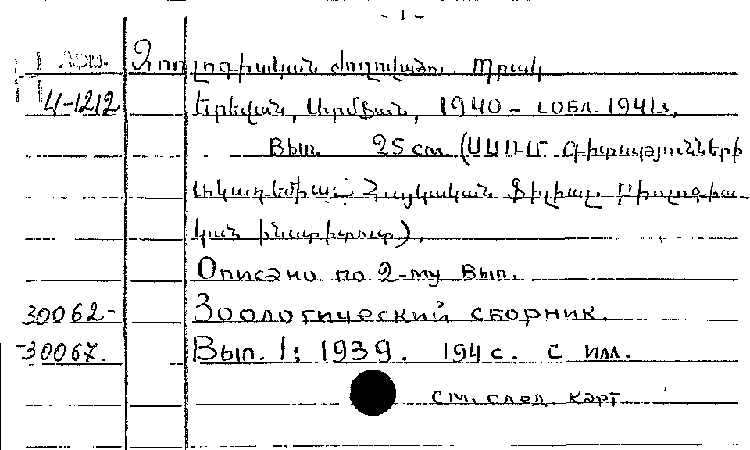 - 1 -
Զոոլոգիական ժողովածու. Պրակ
Ա-1212 Երեվան, Արմֆան, 1940 - [обл. 1941].
Вып. 25 см. (ՍՍՌՄ Գիտությունների
Ակադեմիա. Հայկական Ֆիլիալ. Բիոլոգիա-
կան ինստիտուտ).
Описано по 2-му вып.
30062- Зоологический сборник.
-30067. Вып. 1: 1939. 194 с. с илл.
см. след. карт